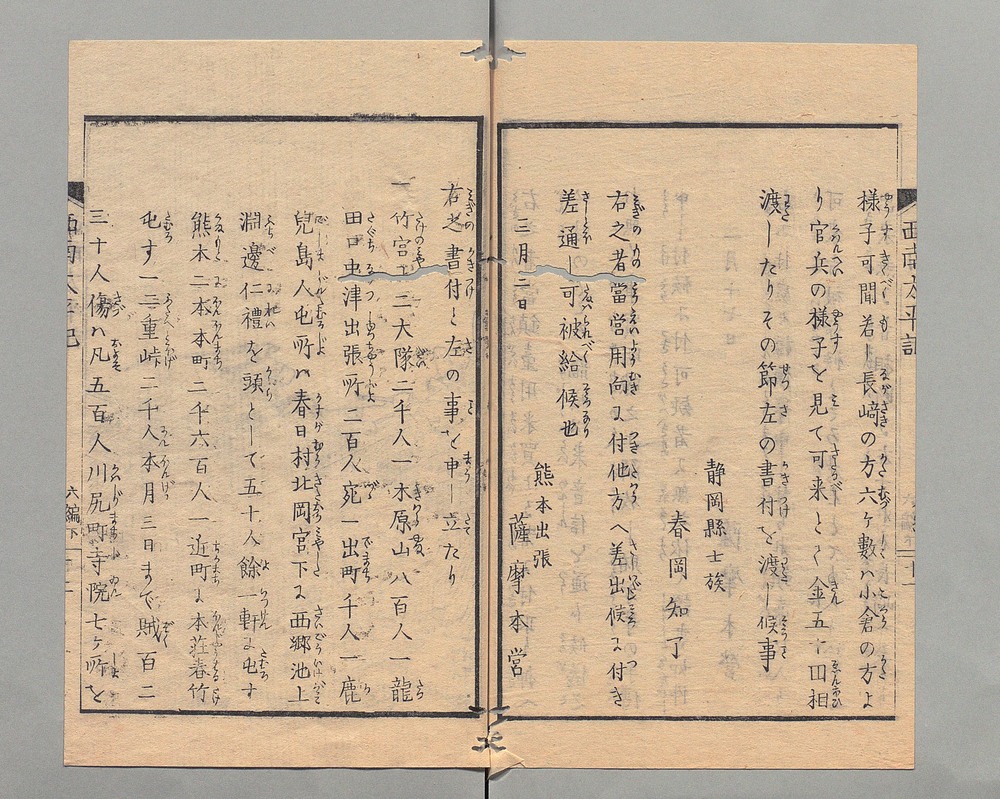 様子可聞若又長﨑の方六ヶ敷ハ小倉の方よ
り官兵の様子を見て可来とて金五十円相
渡したりその節左の書付を渡し候事
静岡縣士族
春岡知了
右之者當営用向に付他方へ差出候に付き
差通し可被給候也
三月二日
熊本出張
薩摩本営
右之書付と左の事を申し立たり
一竹宮二大隊二千人一木原山八百人一龍
田口虫津出張所二百人宛一出町千人一鹿
兒島人屯所ハ春日村北岡宮下に西郷池上
淵邊仁禮を頭として五十人餘一軒に屯す
熊本二本木町二千六百人一近町に本荘春竹
屯す一三重峠二千人本月三日まで賊百二
三十人傷ハ凡五百人川尻町寺院七ヶ所を
西南太平記
六編下